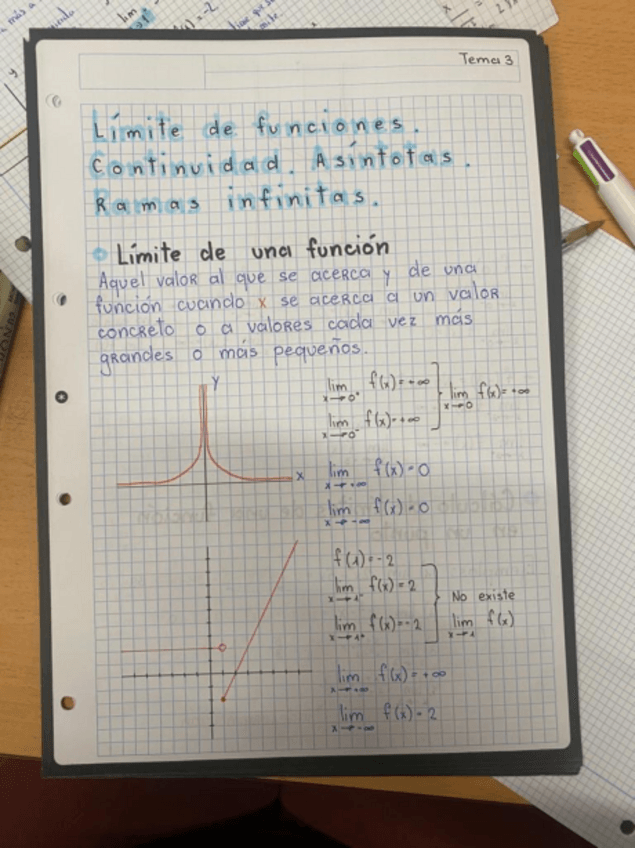 Tema 3
Límite de funciones.
Continuidad. Asíntotas.
Ramas infinitas.
Límite de una función
Aquel valor al que se acerca y de una
función cuando x se acerca a un valor
concreto o a valores cada vez más
grandes o más pequeños.
y
x
lim x→0⁺ f(x)=+∞
lim x→0⁻ f(x)=+∞
lim x→0 f(x)=+∞
lim x→+∞ f(x)=0
lim x→-∞ f(x)=0
f(1)=-2
lim x→1⁻ f(x)=2
lim x→1⁺ f(x)=-2
No existe
lim x→1 f(x)
lim x→+∞ f(x)=+∞
lim x→-∞ f(x)=2